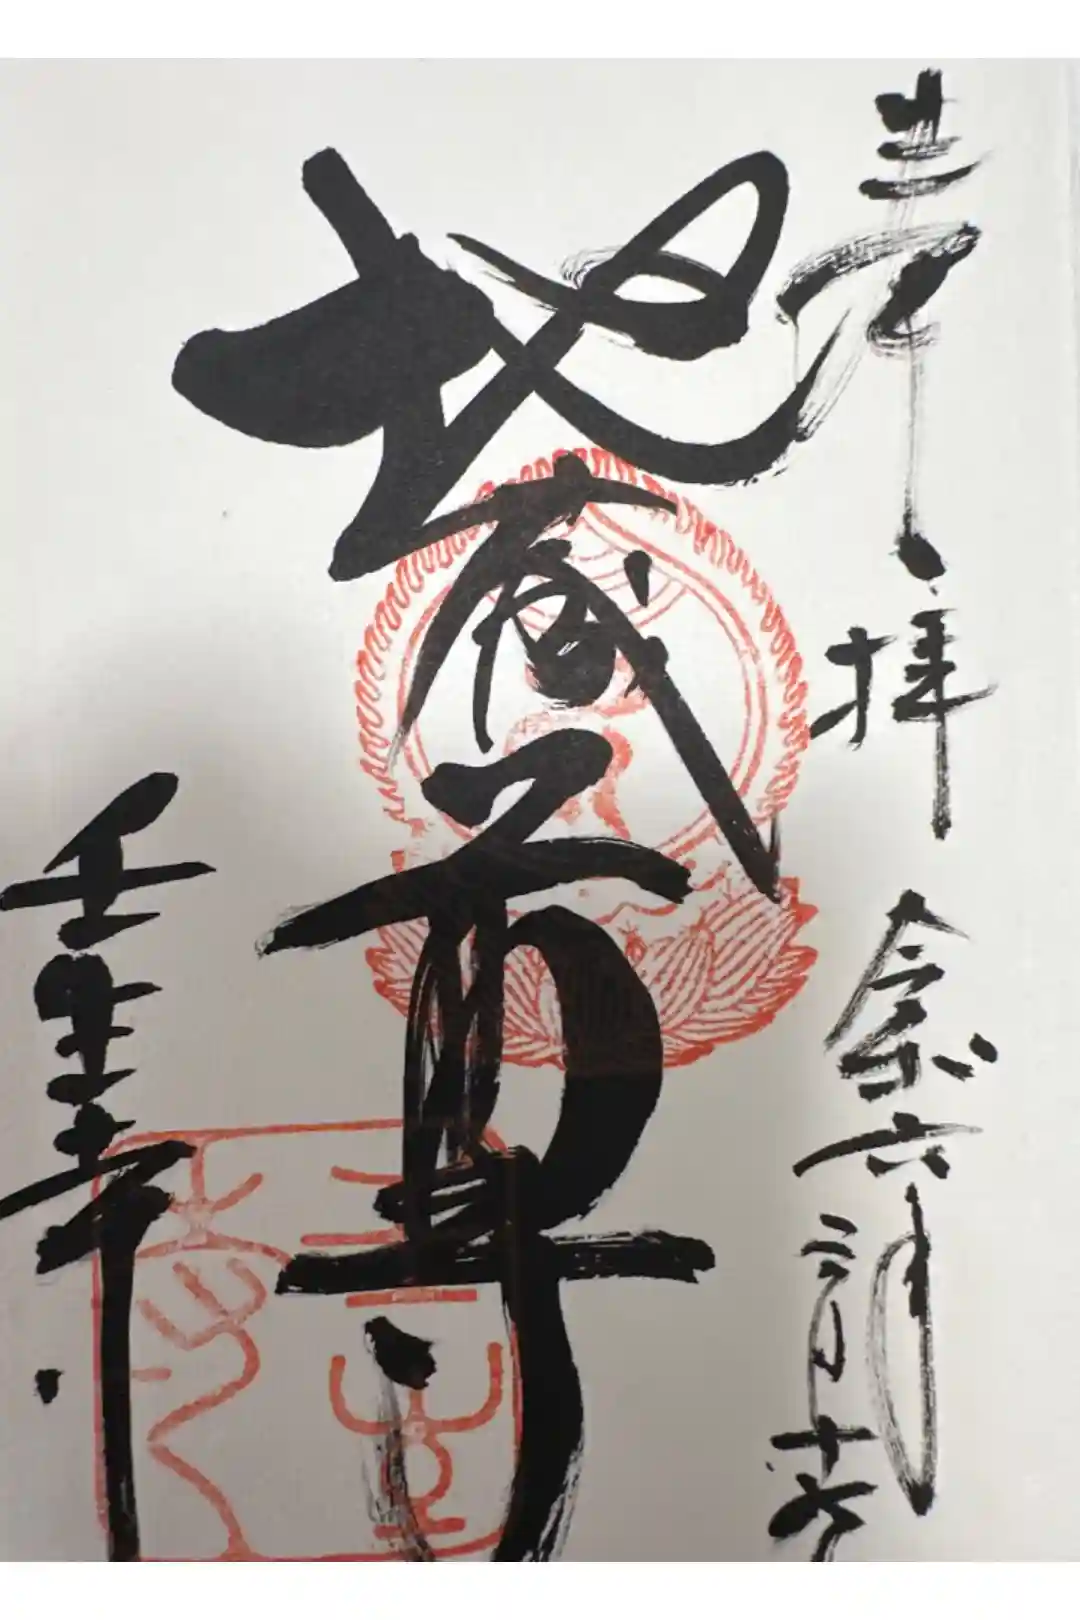 奉拝 令和六年三月十
地蔵尊
壬生寺